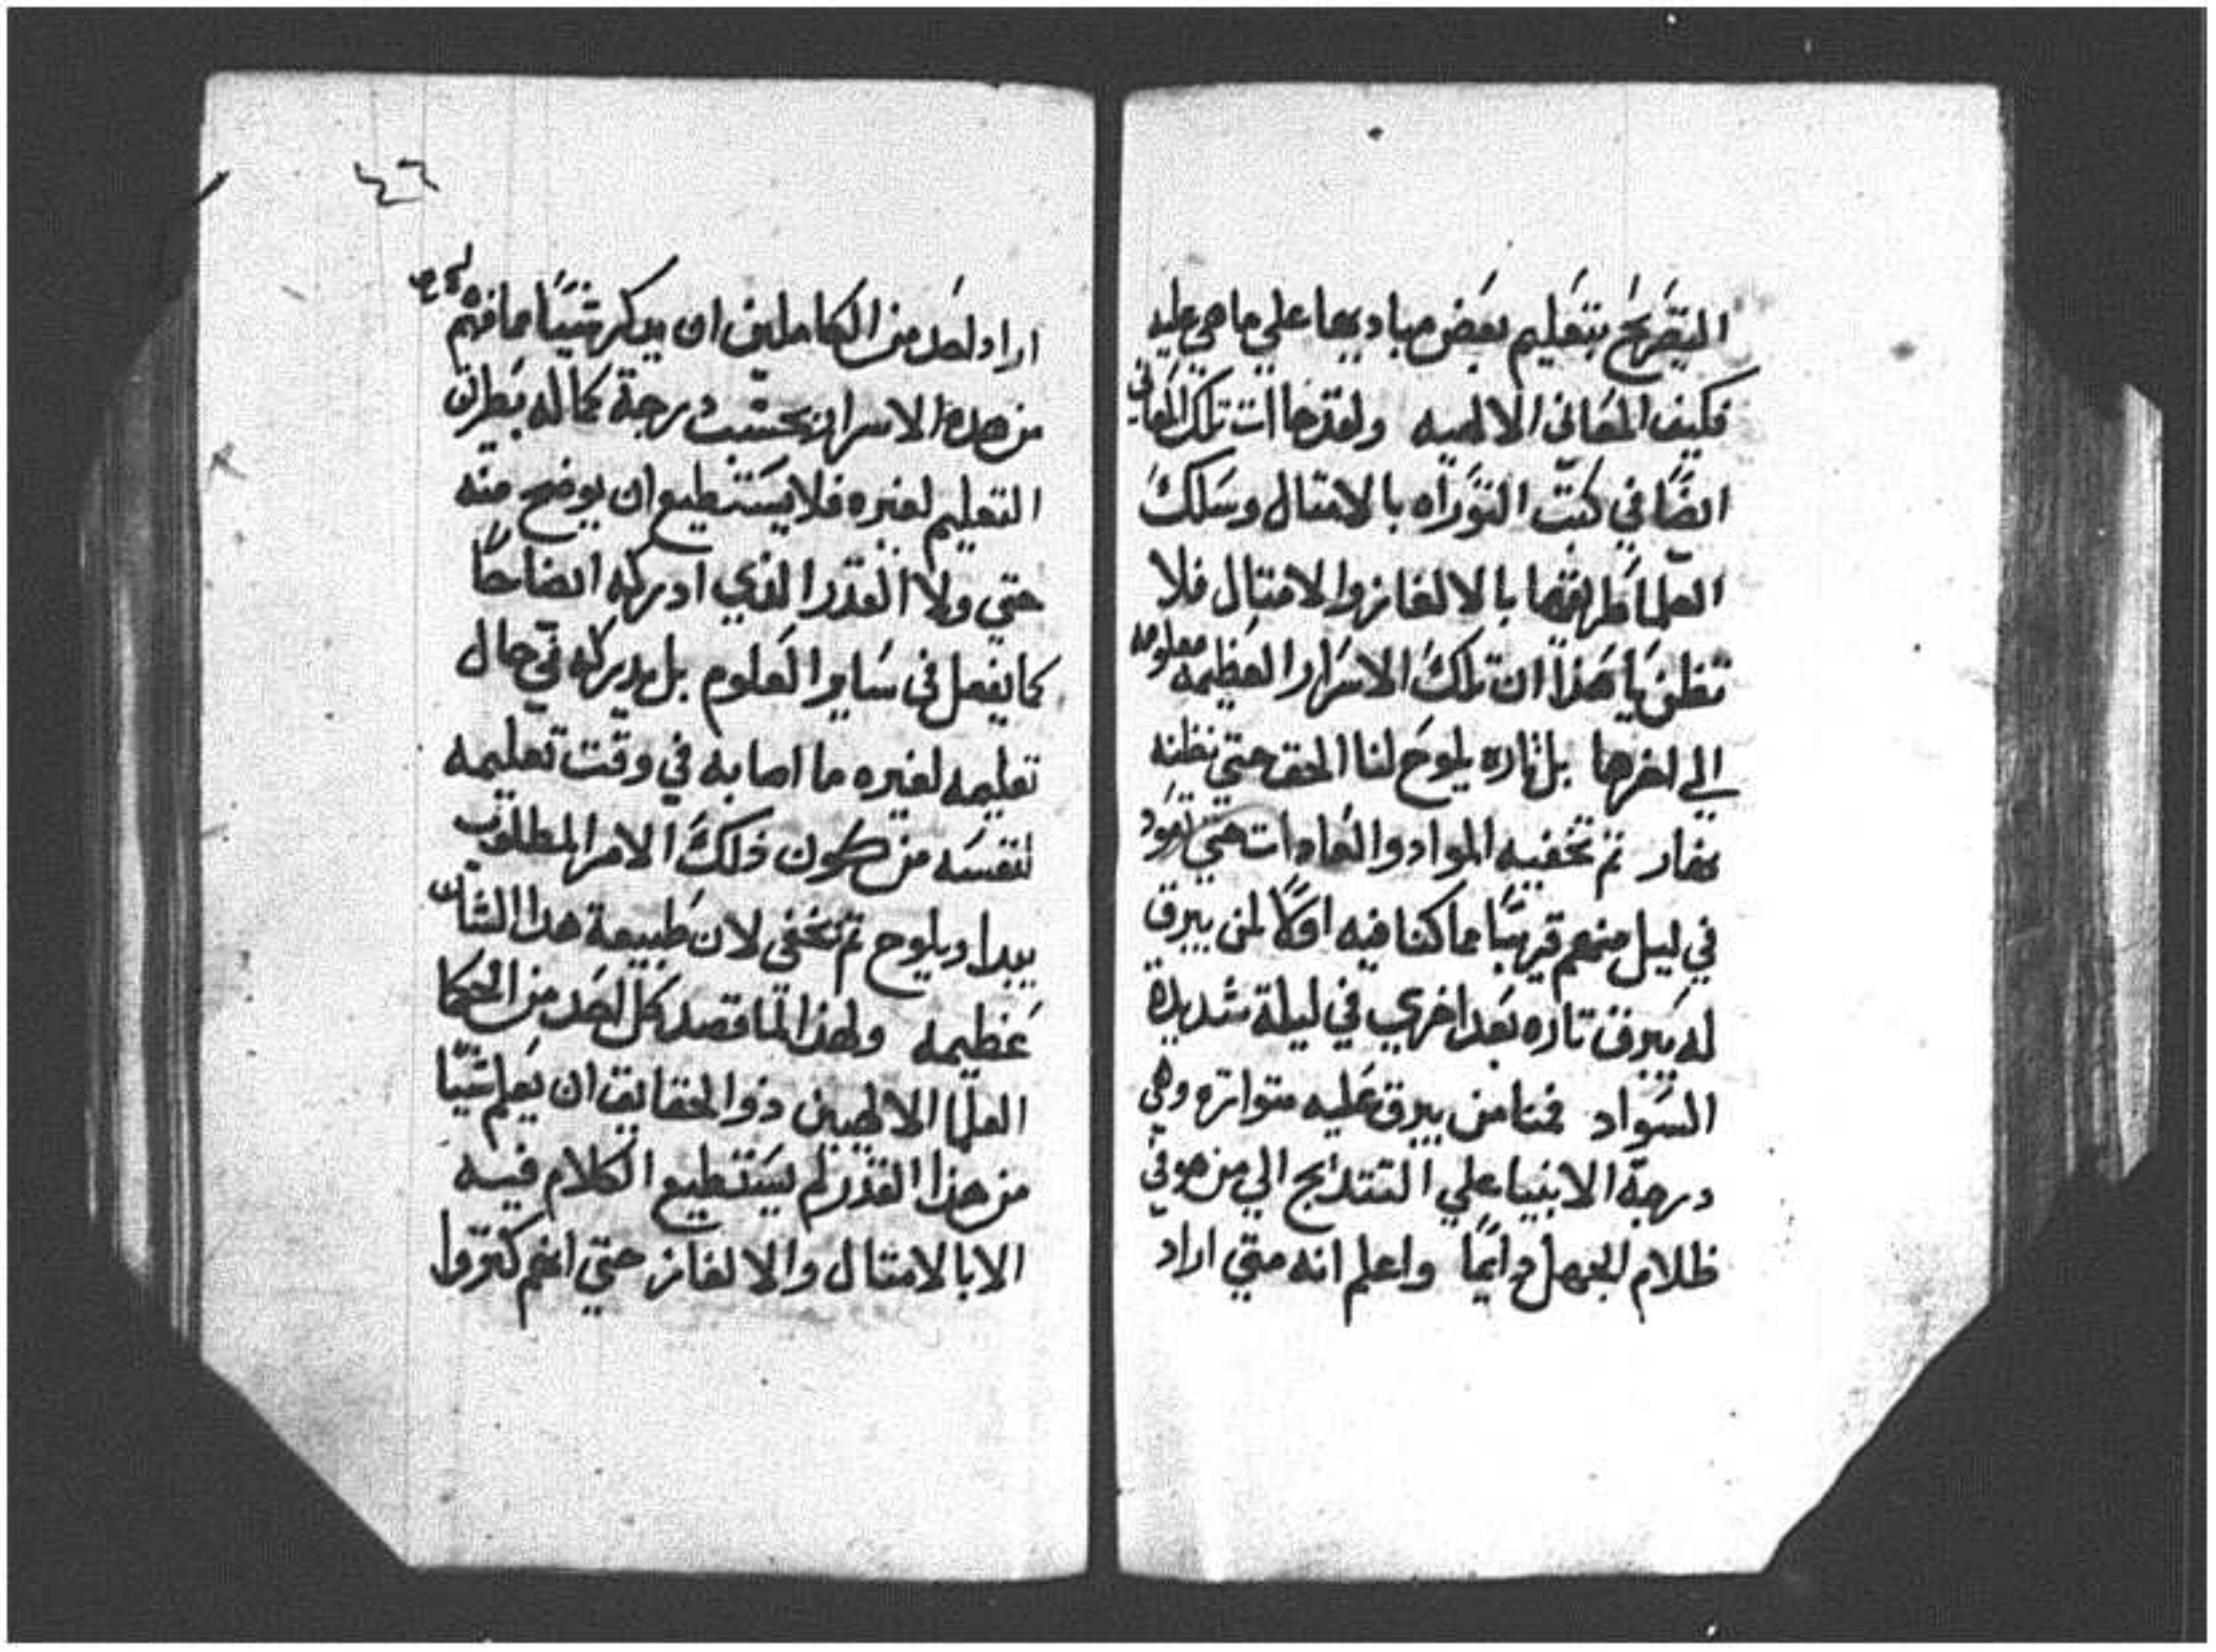 التصريح بتعليم بعض مباديها علي ما هي عليه
فكيف المعاني الالهيه ولقد جاات تلك المعاني
ايضًا في كتب التوراه بالامتال وسلك
العلما طريقها بالالغاز والامتال فلا
تظن يا هذا ان تلك الاسرار العظيمه معلومه
الي اخرها بل تاره يلوح لنا الحق حتي نظنه
نهار تم تخفيه المواد والعادات حتي نعود
في ليل منهم قريبًا مما كنا فيه اولًا لمن يبرق
له يبرق تاره بعد اخري في ليلة شديدة
السواد فمنا من يبرق عليه متواتره وهي
درجة الانبيا علي التتدريج الي من هو في
ظلام الجهل دايمًا واعلم انه متي اراد
٤٦
اراد احد من الكاملين ان يدكر شيئًا مما فهم
من هده الاسرار بحسب درجة كماله بطريق
التعليم لغيره فلا يستطيع ان يوضح منه
حتي ولا القدر الذي ادركه ايضاحًا
كما يفعل في ساير العلوم بل يدركه في حال
تعليمه لغيره ما اصابه في وقت تعليمه
لنفسه من كون ذلك الامر المطلوب
يبدا ويلوح تم تخفي لان طبيعة هدا الشان
عظيمه ولهذا لما قصد كل احد من الحكما
العلما الالهيين ذوا الحقايق ان يعلم شيًا
من هذا القدر لم يستطيع الكلام فيه
الا بالامتال والالغاز حتي انهم كتروا